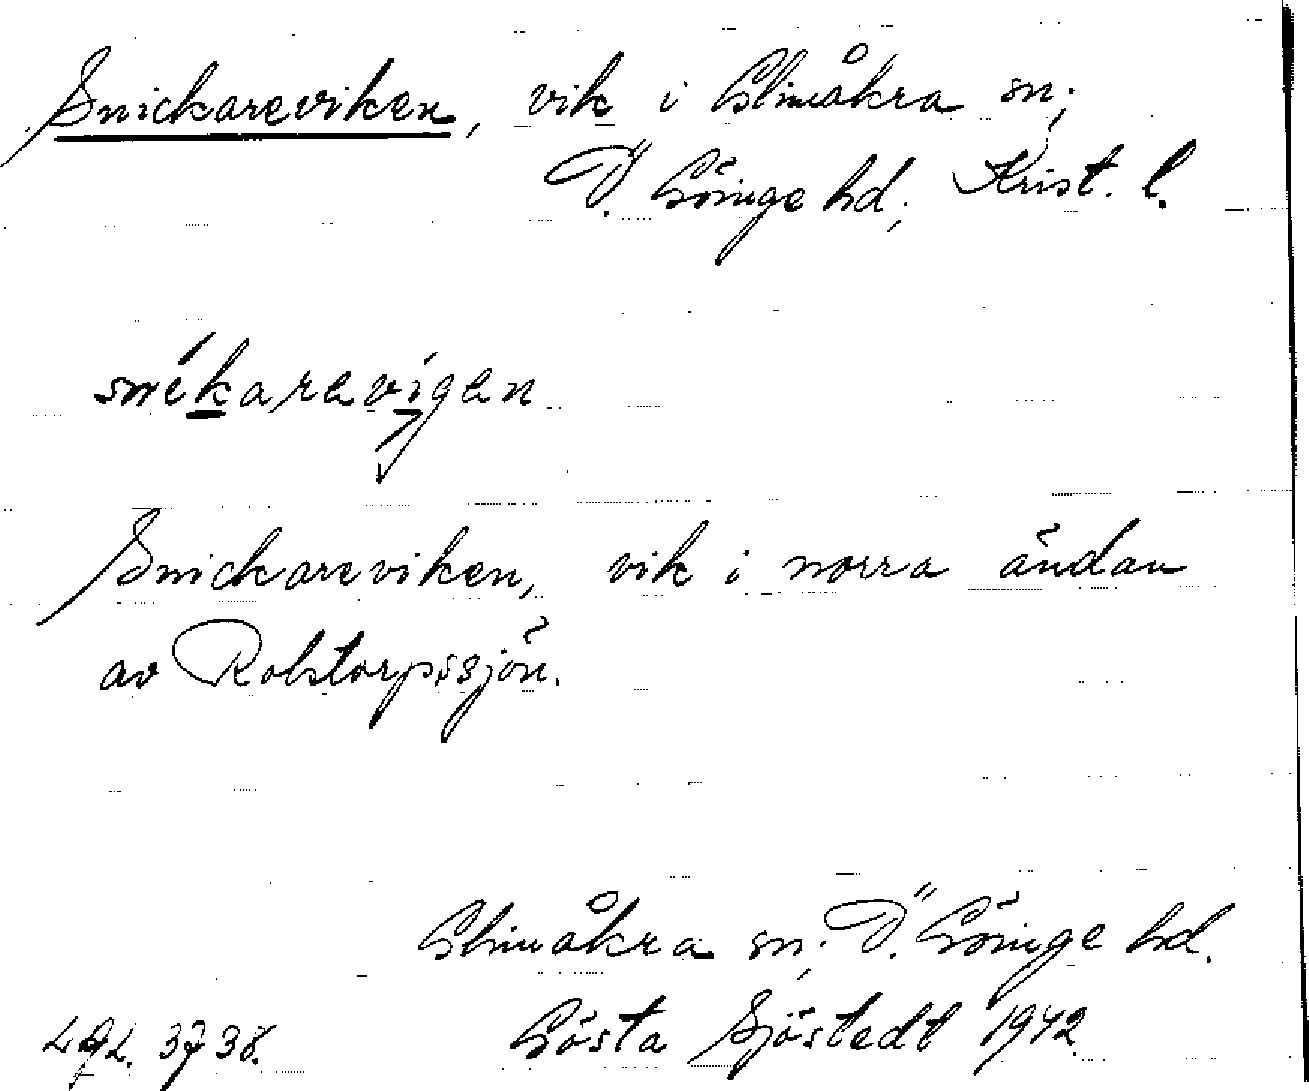 Snickareviken, vik i Glimåkra sn;
Ö. Göinge hd; Krist. l.
snékarevigen
Snickareviken, vik i norra ändan
av Rolstorpssjön.
Glimåkra sn; Ö. Göinge hd.
Gösta Sjöstedt 1942
3738.